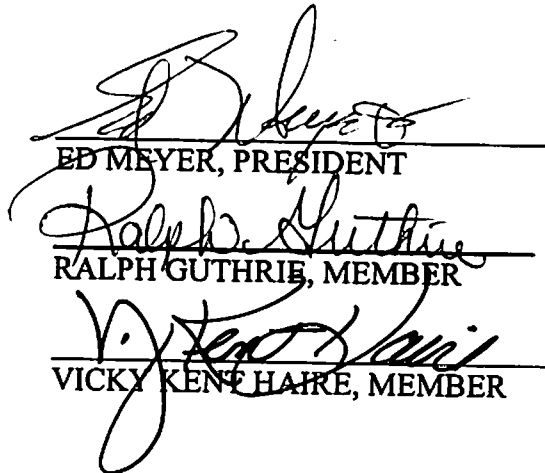 Ed Meyer
ED MEYER, PRESIDENT
Ralph Guthrie
RALPH GUTHRIE, MEMBER
V. Kent Haire
VICKY KENT HAIRE, MEMBER